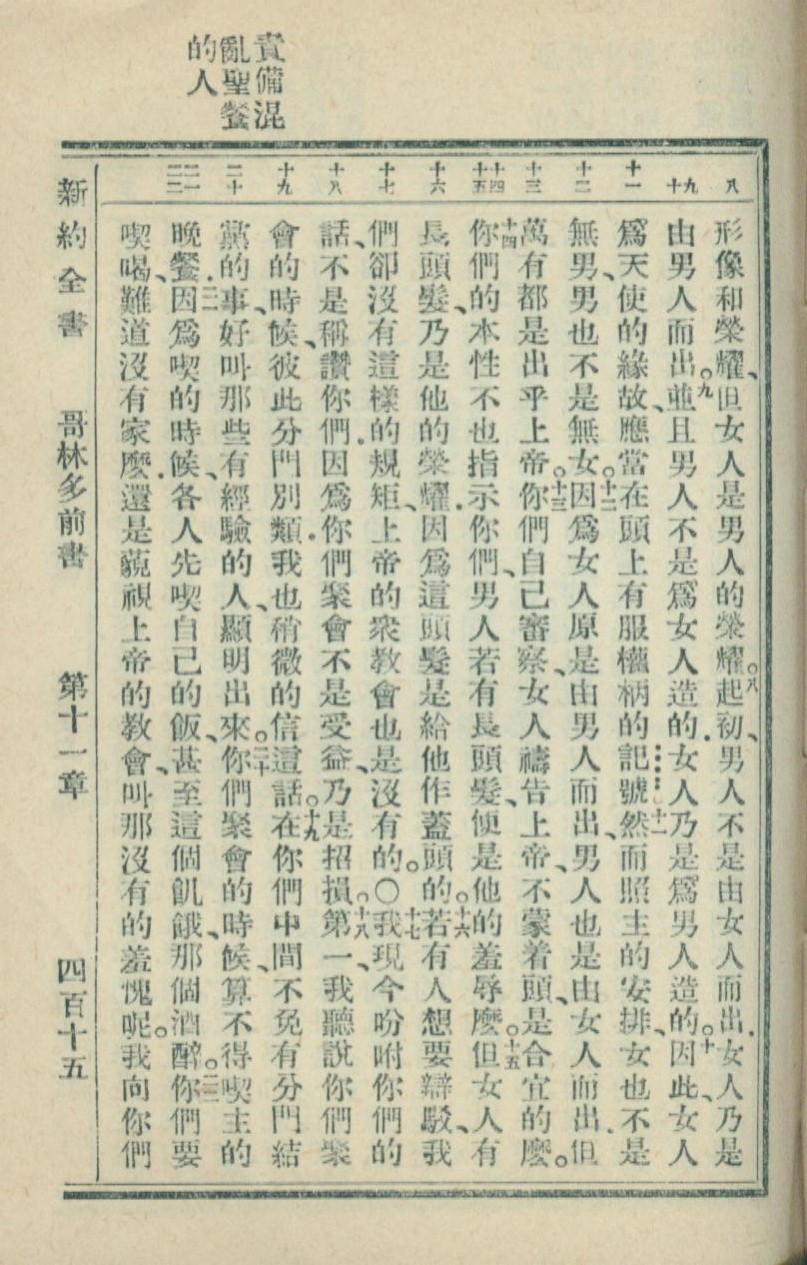 責備混
亂聖餐
的人
八
九 十
十一
十二
十三
十四 十五
十六
十七
十八
十九
二十
二一 二二
形像和榮耀、但女人是男人的榮耀。八起初、男人不是由女人而出．女人乃是
由男人而出。九並且男人不是爲女人造的．女人乃是爲男人造的。十因此、女人
爲天使的緣故、應當在頭上有服權柄的記號。十一然而照主的安排、女也不是
無男、男也不是無女。十二因爲女人原是由男人而出、男人也是由女人而出．但
萬有都是出乎上帝。十三你們自己審察、女人禱告上帝、不蒙着頭、是合宜的麽。
十四你們的本性不也指示你們、男人若有長頭髮、便是他的羞辱麽。十五但女人有
長頭髮、乃是他的榮耀．因爲這頭髮是給他作蓋頭的。十六若有人想要辯駁、我
們卻沒有這樣的規矩、上帝的衆教會也是沒有的。〇十七我現今吩咐你們的
話、不是稱讚你們．因爲你們聚會不是受益、乃是招損。十八第一、我聽說你們聚
會的時候、彼此分門別類．我也稍微的信這話。十九在你們中間不免有分門結
黨的事、好叫那些有經驗的人、顯明出來。二十你們聚會的時候、算不得喫主的
晚餐．二一因爲喫的時候、各人先喫自己的飯、甚至這個飢餓、那個酒醉。二二你們要
喫喝、難道沒有家麽．還是藐視上帝的教會、叫那沒有的羞愧呢。我向你們
新約全書 哥林多前書 第十一章 四百十五